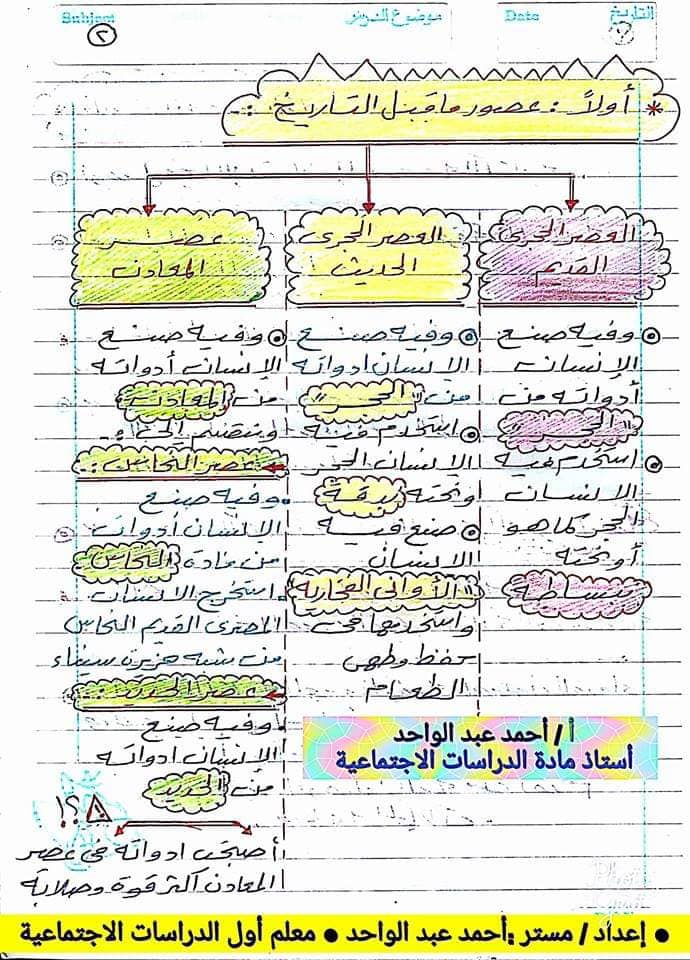 Subject
موضوع الدرس
Date
التاريخ
٢
* أولاً : عصور ما قبل التاريخ :-
العصر الحجرى
القديم
وفيه صنع
الإنسان
أدواته من
"الحجر"
استخدم فيه
الانسان
الحجر كما هو
أو نحته
ببساطة
العصر الحجرى
الحديث
وفيه صنع
الانسان ادواته
من "الحجر"
استخدم فيه
الانسان الحجر
ونحته بدقة
صنع فيه
الانسان
"الأوانى الفخارية"
واستخدمها فى
حفظ وطهى
الطعام
عصر
المعادن
وفيه صنع
الانسان أدواته
من المعادن
وينقسم إلى :-
عصر النحاس :-
وفيه صنع
الانسان أدوات
من مادة النحاس
استخرج الانسان
المصرى القديم النحاس
من شبه جزيرة سيناء
عصر الحديد :-
وفيه صنع
الانسان ادواته
من الحديد
!؟
أصبحت ادواته فى عصر
المعادن أكثر قوة وصلابة
أ / أحمد عبد الواحد
أستاذ مادة الدراسات الاجتماعية
● إعداد / مستر :أحمد عبد الواحد ● معلم أول الدراسات الاجتماعية